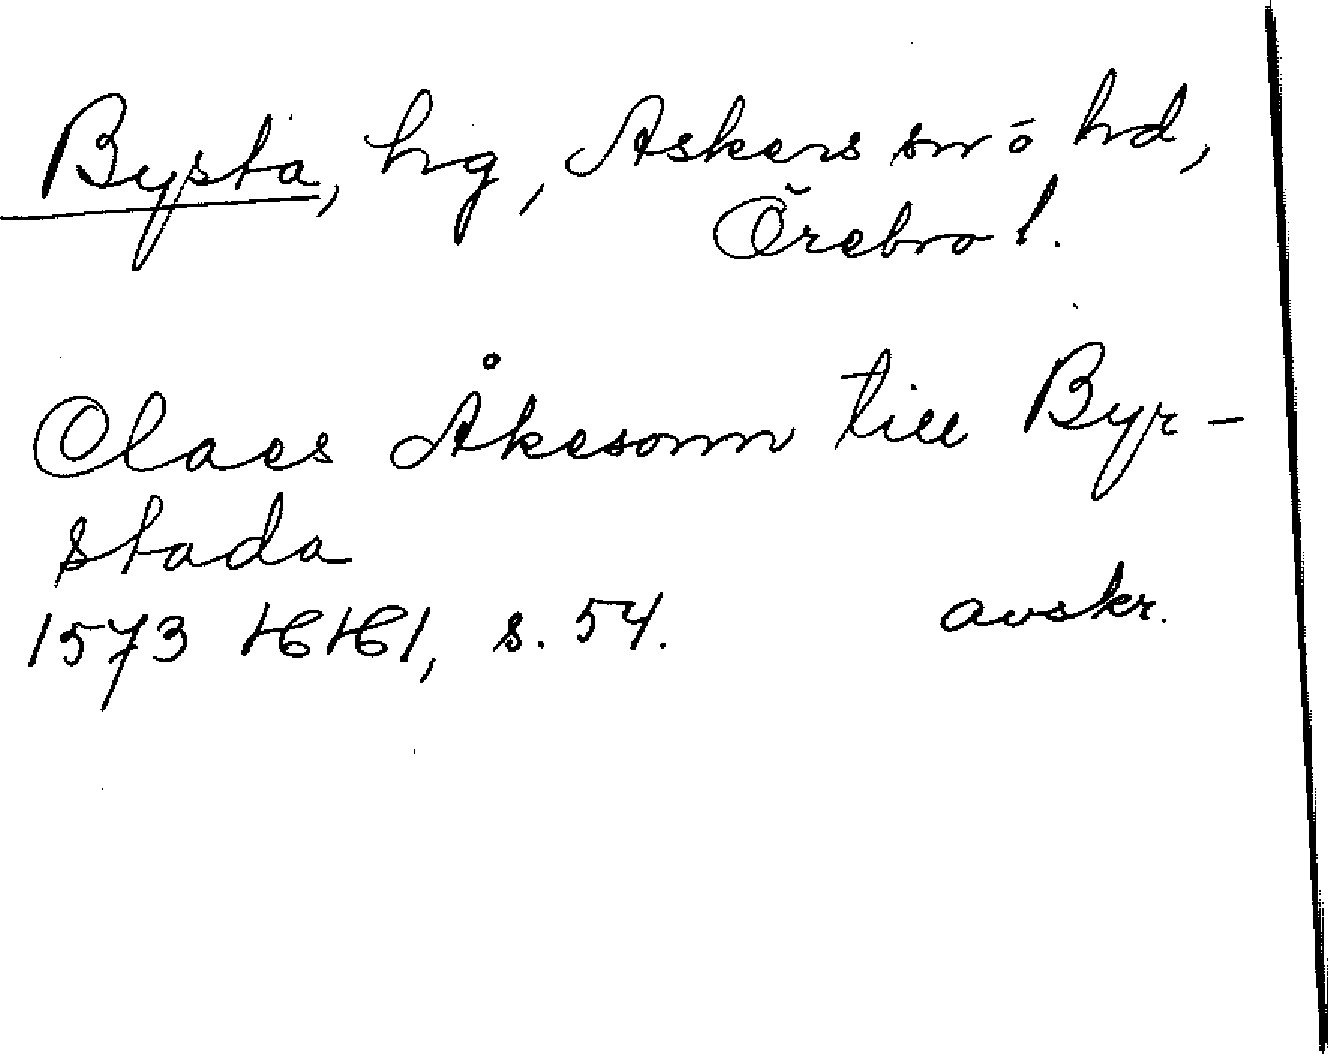 Bysta, hg, Askers sn o hd,
Örebro l.
Claes Åkesonn till Byr-
stada
1573 HH1, s. 54. avskr.